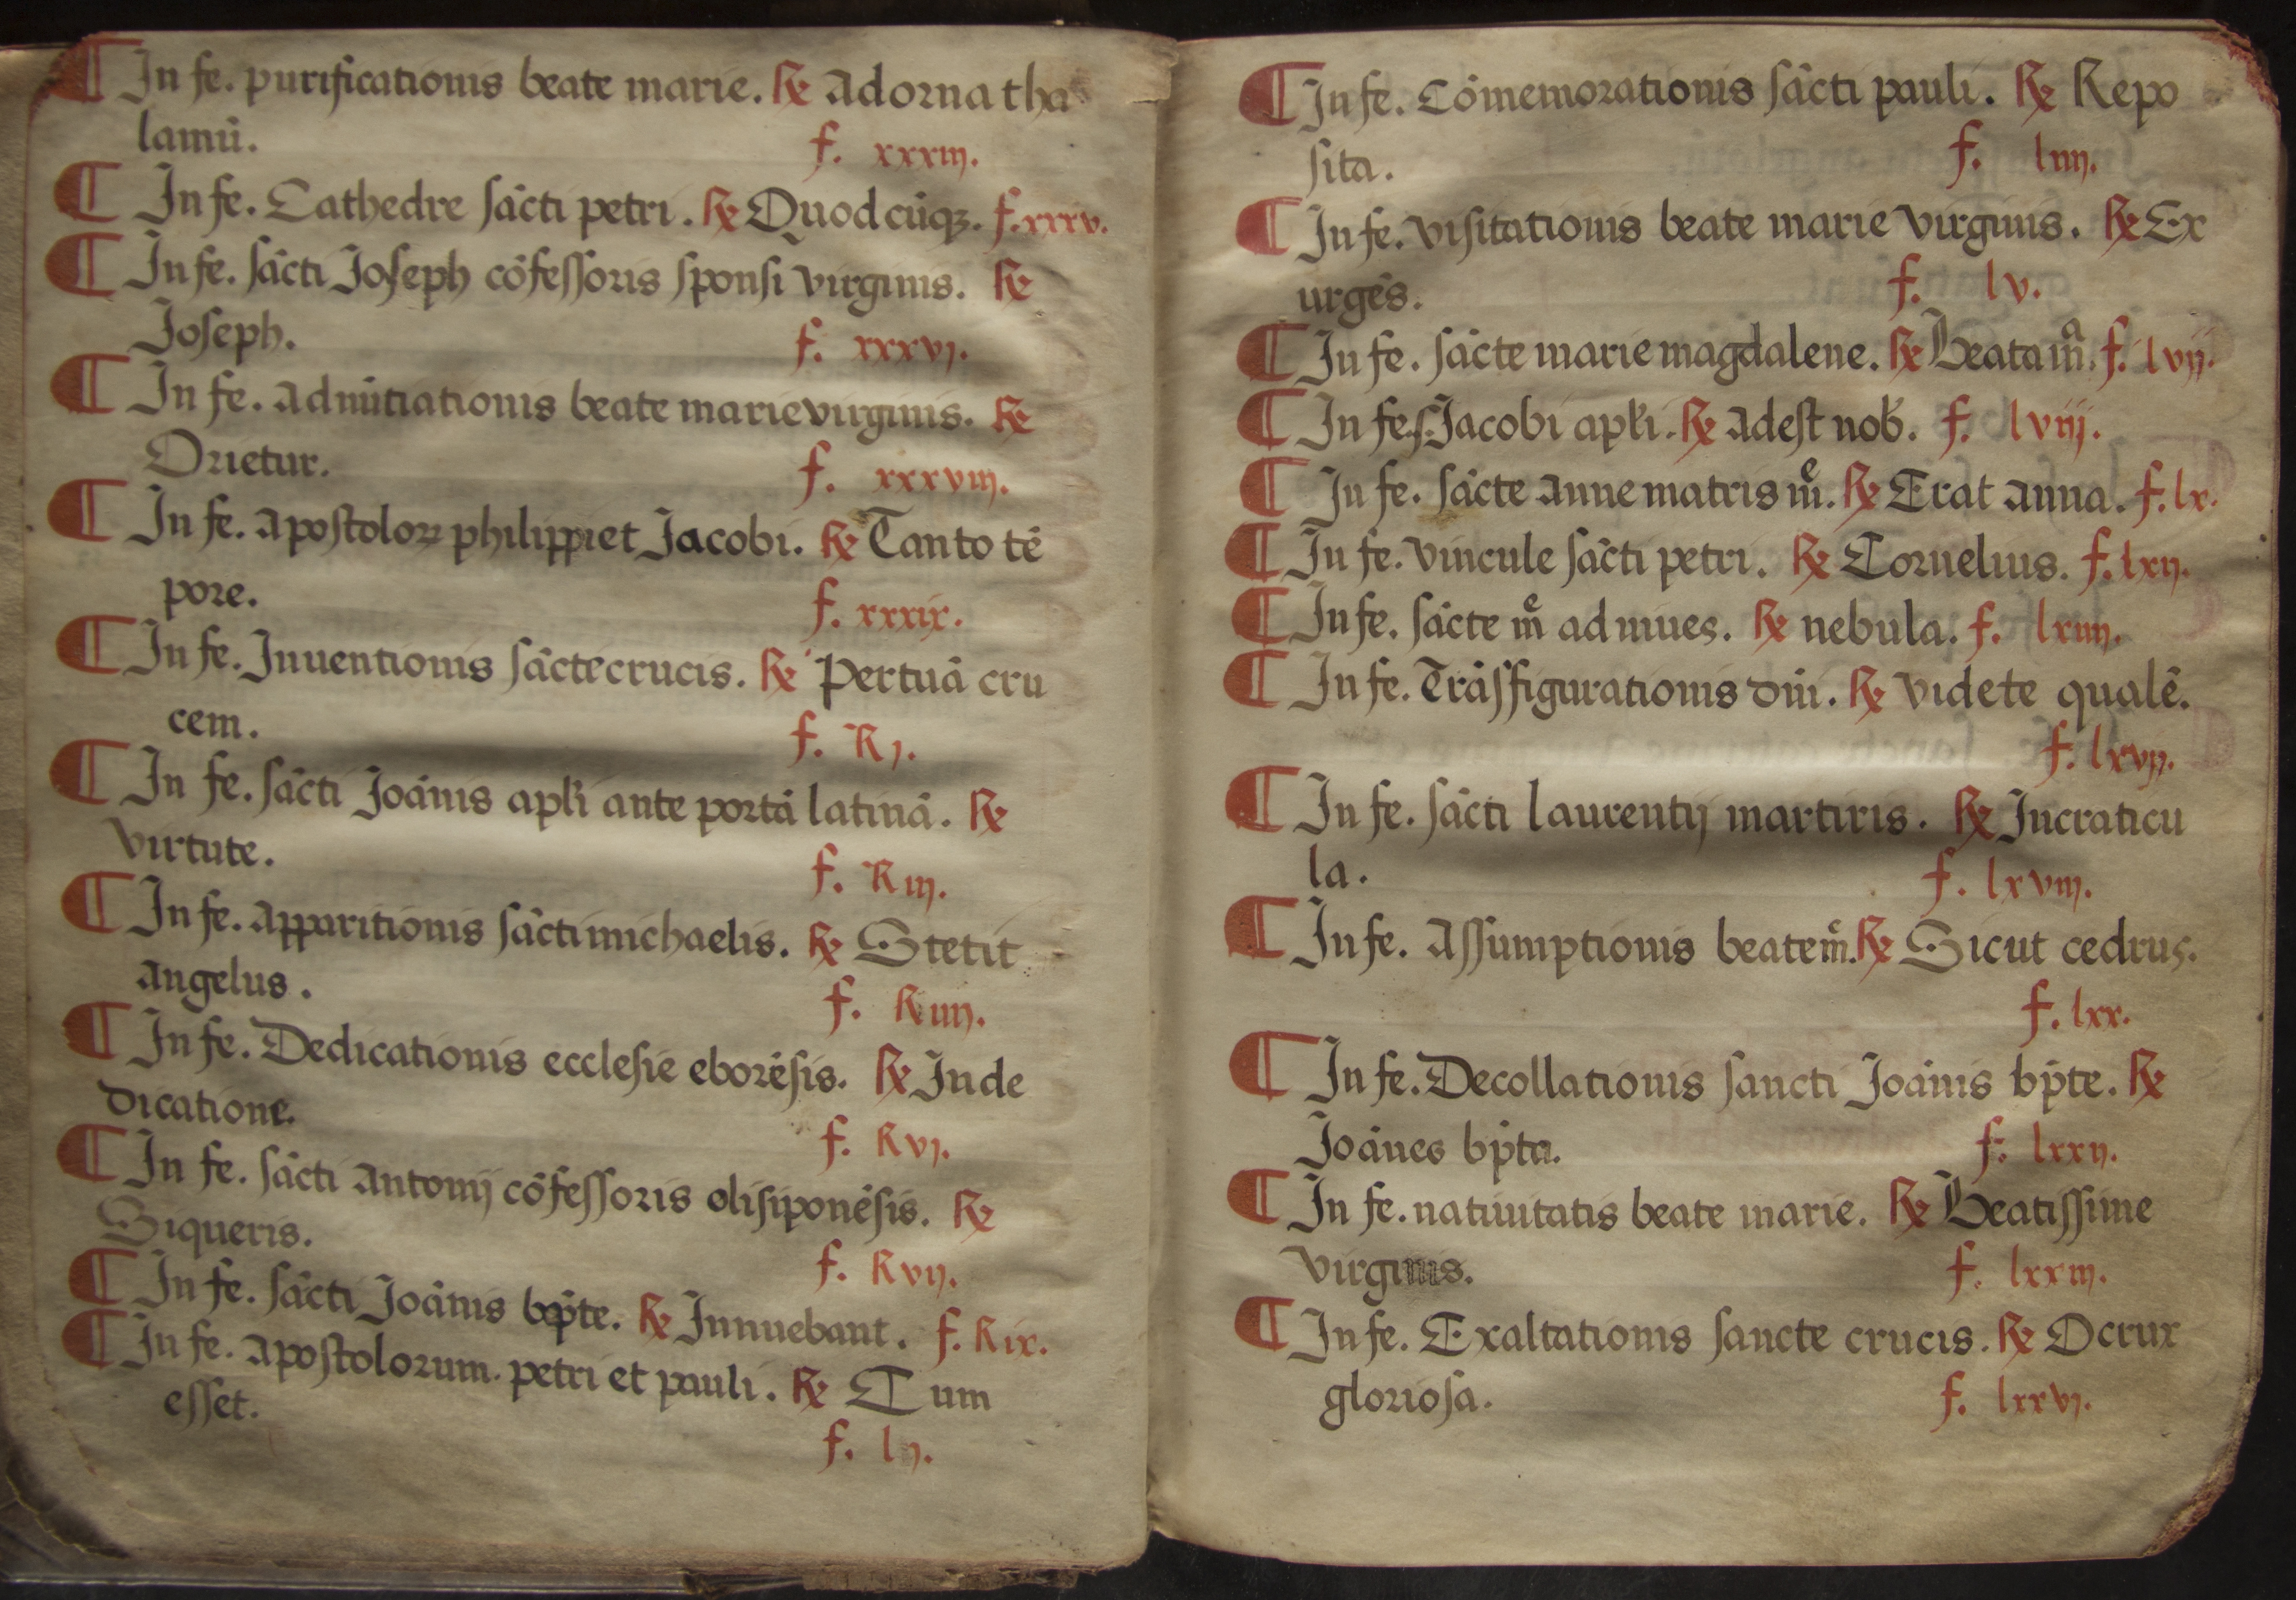 ¶ In fe. purificationis beate marie. ℞ Adorna tha
lamū. f. xxxiij.
¶ In fe. Cathedre sācti petri. ℞ Quodcūqꝫ. f. xxxv.
¶ In fe. sācti Joseph cōfessoris sponsi virginis. ℞
Joseph. f. xxxvj.
¶ In fe. Adnūtiationis beate marie virginis. ℞
Orietur. f. xxxviij.
¶ In fe. Apostoloꝝ philippi et Jacobi. ℞ Tanto tē
pore. f. xxxix.
¶ In fe. Inuentionis sācte crucis. ℞ Per tuā cru
cem. f. Rj.
¶ In fe. sācti Joānis apłi ante portā latinā. ℞
virtute. f. Riij.
¶ In fe. Apparitionis sācti michaelis. ℞ Stetit
Angelus. f. Riiij.
¶ In fe. Dedicationis ecclesie eborēsis. ℞ In de
dicatione. f. Rvj.
¶ In fe. sācti Antonij cōfessoris olisiponēsis. ℞
Si queris. f. Rvij.
¶ In fe. sācti Joānis bp̄te. ℞ Innuebant. f. Rix.
¶ In fe. Apostolorum. petri et pauli. ℞ Cum
esset. f. lij.
¶ In fe. Cōmemorationis sācti pauli. ℞ Repo
sita. f. liiij.
¶ In fe. visitationis beate marie virginis. ℞ Ex
urgēs. f. lv.
¶ In fe. sācte marie magdalene. ℞ Beata mͣ. f. lvij.
¶ In fe. s. Jacobi apłi. ℞ Adest nob. f. lviij.
¶ In fe. sācte Anne matris mͤ. ℞ Erat Anna. f. lx.
¶ In fe. vincule sācti petri. ℞ Cornelius. f. lxij.
¶ In fe. sācte mͤ ad niues. ℞ nebula. f. lxiiij.
¶ In fe. Trāsfigurationis dn̄i. ℞ videte qualē.
f. lxvij.
¶ In fe. sācti laurentij martiris. ℞ In craticu
la. f. lxviij.
¶ In fe. Assumptionis beate mͤ. ℞ Sicut cedrus.
f. lxx.
¶ In fe. Decollationis sancti Joānis bp̄te. ℞
Joānes bp̄ta. f. lxxij.
¶ In fe. natiuitatis beate marie. ℞ Beatissime
virginis. f. lxxiij.
¶ In fe. Exaltationis sancte crucis. ℞ O crux
gloriosa. f. lxxvj.